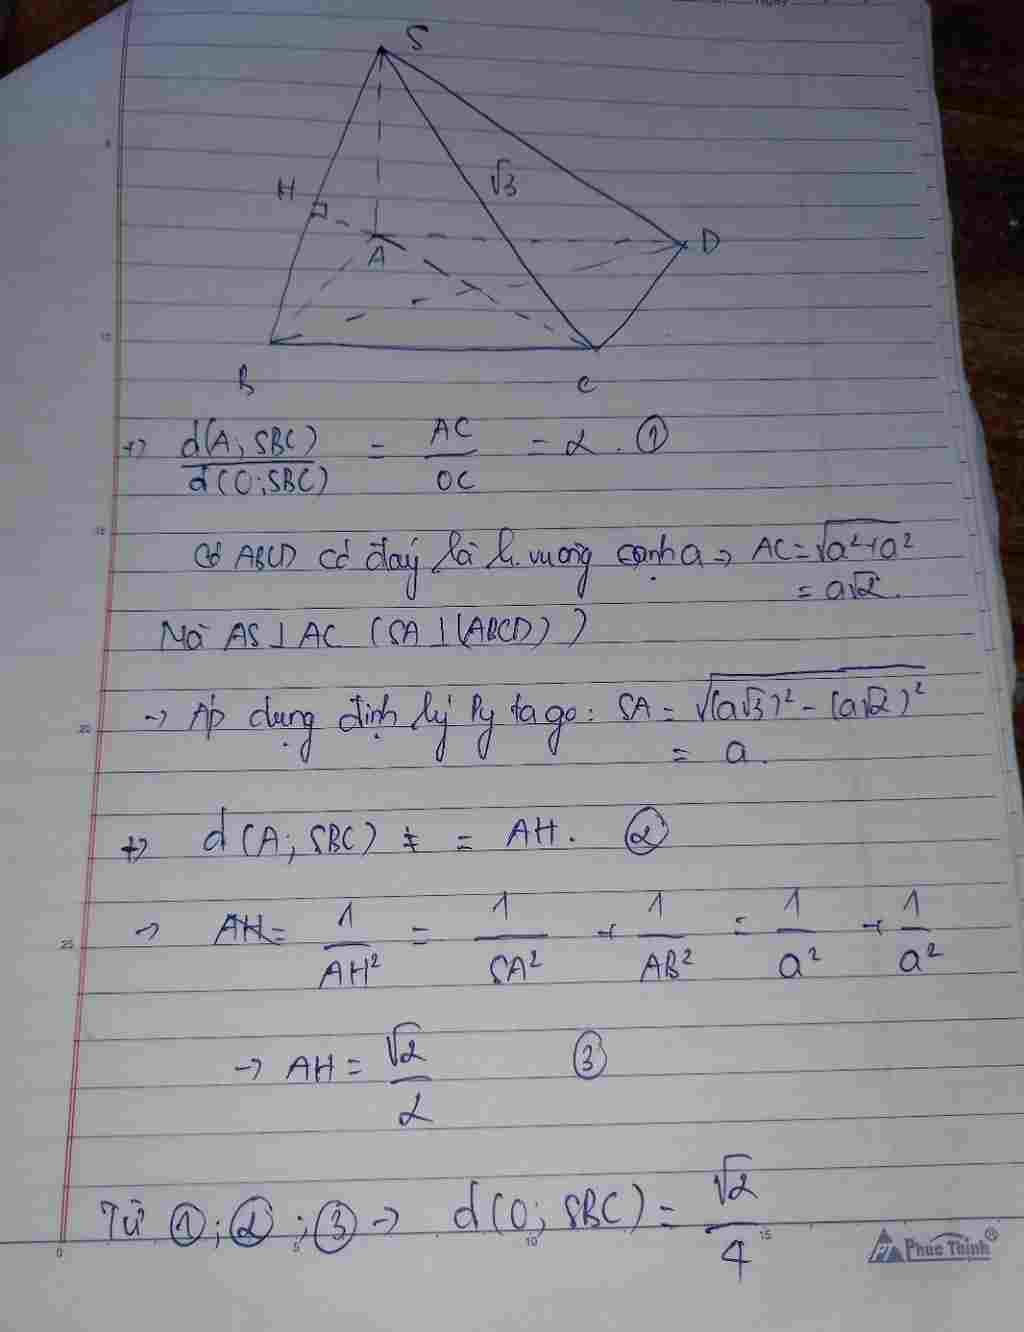 S
H
√3
A
D
B
C
+> d(A; SBC) / d(O; SBC) = AC / OC = 2. ①
Có ABCD có đáy là h. vuông cạnh a → AC = √(a² + a²)
= a√2.
Mà AS ⊥ AC (SA ⊥ (ABCD))
→ Áp dụng định lý Pytago: SA = √((a√3)² - (a√2)²)
= a.
+> d(A; SBC) = AH. ②
→ 1 / AH² = 1 / SA² + 1 / AB² = 1 / a² + 1 / a²
→ AH = √2 / 2 ③
Từ ①; ②; ③ → d(O; SBC) = √2 / 4
5
10
15
20
25
0
5
10
15
Phuc Thinh®